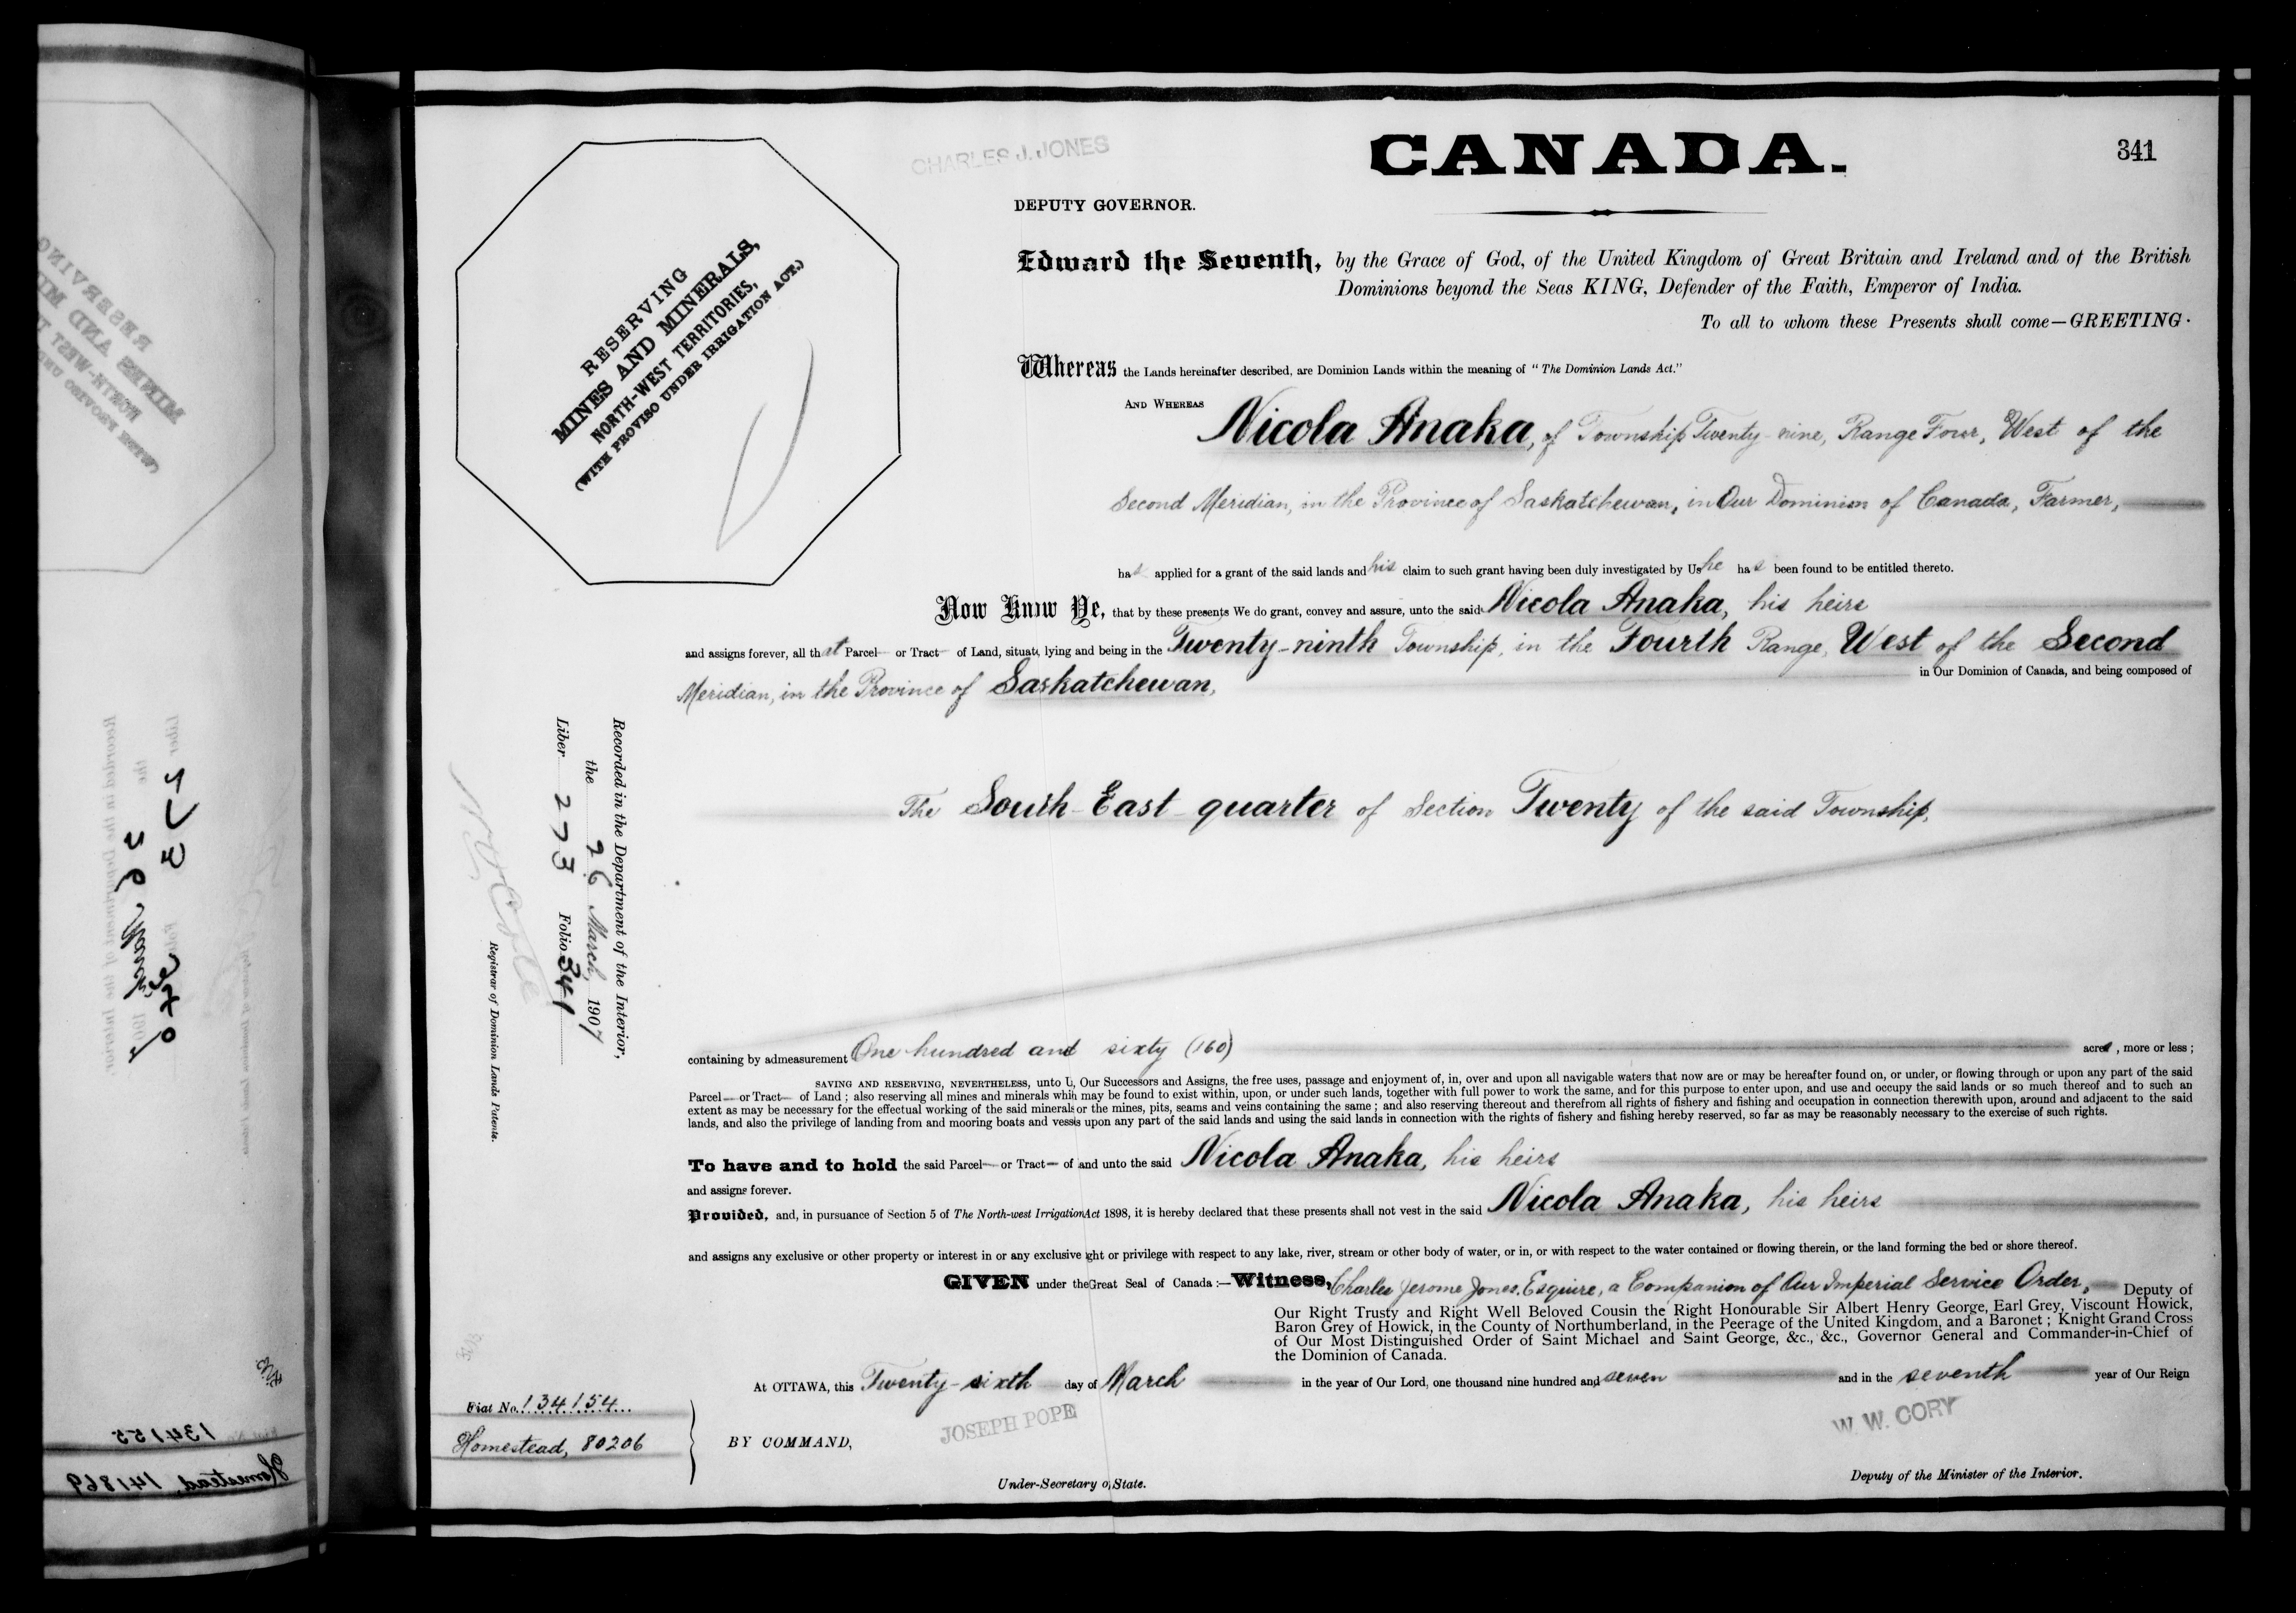 CANADA.
341
CHARLES J. JONES
DEPUTY GOVERNOR.
RESERVING
MINES AND MINERALS,
NORTH-WEST TERRITORIES,
(WITH PROVISO UNDER IRRIGATION ACT.)
Edward the Seventh, by the Grace of God, of the United Kingdom of Great Britain and Ireland and of the British
Dominions beyond the Seas KING, Defender of the Faith, Emperor of India.
To all to whom these Presents shall come—GREETING.
Whereas the Lands hereinafter described, are Dominion Lands within the meaning of "The Dominion Lands Act."
AND WHEREAS Nicola Anaka, of Township Twenty-nine, Range Four, West of the
Second Meridian, in the Province of Saskatchewan, in Our Dominion of Canada, Farmer,
has applied for a grant of the said lands and his claim to such grant having been duly investigated by Us he has been found to be entitled thereto.
Now Know Ye, that by these presents We do grant, convey and assure, unto the said Nicola Anaka, his heirs
and assigns forever, all that Parcel or Tract of Land, situate, lying and being in the Twenty-ninth Township, in the Fourth Range, West of the Second
Meridian, in the Province of Saskatchewan, in Our Dominion of Canada, and being composed of
The South-East quarter of Section Twenty of the said Township,
Recorded in the Department of the Interior,
the 26 March, 1907
Liber 273 Folio 341
Registrar of Dominion Lands Patents.
containing by admeasurement One hundred and sixty (160) acres, more or less;
SAVING AND RESERVING, NEVERTHELESS, unto U, Our Successors and Assigns, the free uses, passage and enjoyment of, in, over and upon all navigable waters that now are or may be hereafter found on, or under, or flowing through or upon any part of the said
Parcel or Tract of Land; also reserving all mines and minerals whih may be found to exist within, upon, or under such lands, together with full power to work the same, and for this purpose to enter upon, and use and occupy the said lands or so much thereof and to such an
extent as may be necessary for the effectual working of the said minerals or the mines, pits, seams and veins containing the same; and also reserving thereout and therefrom all rights of fishery and fishing and occupation in connection therewith upon, around and adjacent to the said
lands, and also the privilege of landing from and mooring boats and vessls upon any part of the said lands and using the said lands in connection with the rights of fishery and fishing hereby reserved, so far as may be reasonably necessary to the exercise of such rights.
To have and to hold the said Parcel or Tract of and unto the said Nicola Anaka, his heirs
and assigns forever.
Provided, and, in pursuance of Section 5 of The North-west Irrigation Act 1898, it is hereby declared that these presents shall not vest in the said Nicola Anaka, his heirs
and assigns any exclusive or other property or interest in or any exclusive ight or privilege with respect to any lake, river, stream or other body of water, or in, or with respect to the water contained or flowing therein, or the land forming the bed or shore thereof.
GIVEN under the Great Seal of Canada:—Witness, Charles Jerome Jones, Esquire, a Companion of Our Imperial Service Order, Deputy of
Our Right Trusty and Right Well Beloved Cousin the Right Honourable Sir Albert Henry George, Earl Grey, Viscount Howick,
Baron Grey of Howick, in the County of Northumberland, in the Peerage of the United Kingdom, and a Baronet; Knight Grand Cross
of Our Most Distinguished Order of Saint Michael and Saint George, &c., &c., Governor General and Commander-in-Chief of
the Dominion of Canada.
At OTTAWA, this Twenty-sixth day of March in the year of Our Lord, one thousand nine hundred and seven and in the seventh year of Our Reign
Fiat No. 134154
Homestead, 80206
BY COMMAND,
JOSEPH POPE
Under-Secretary of State.
W. W. CORY
Deputy of the Minister of the Interior.
134155
Homestead, 141869